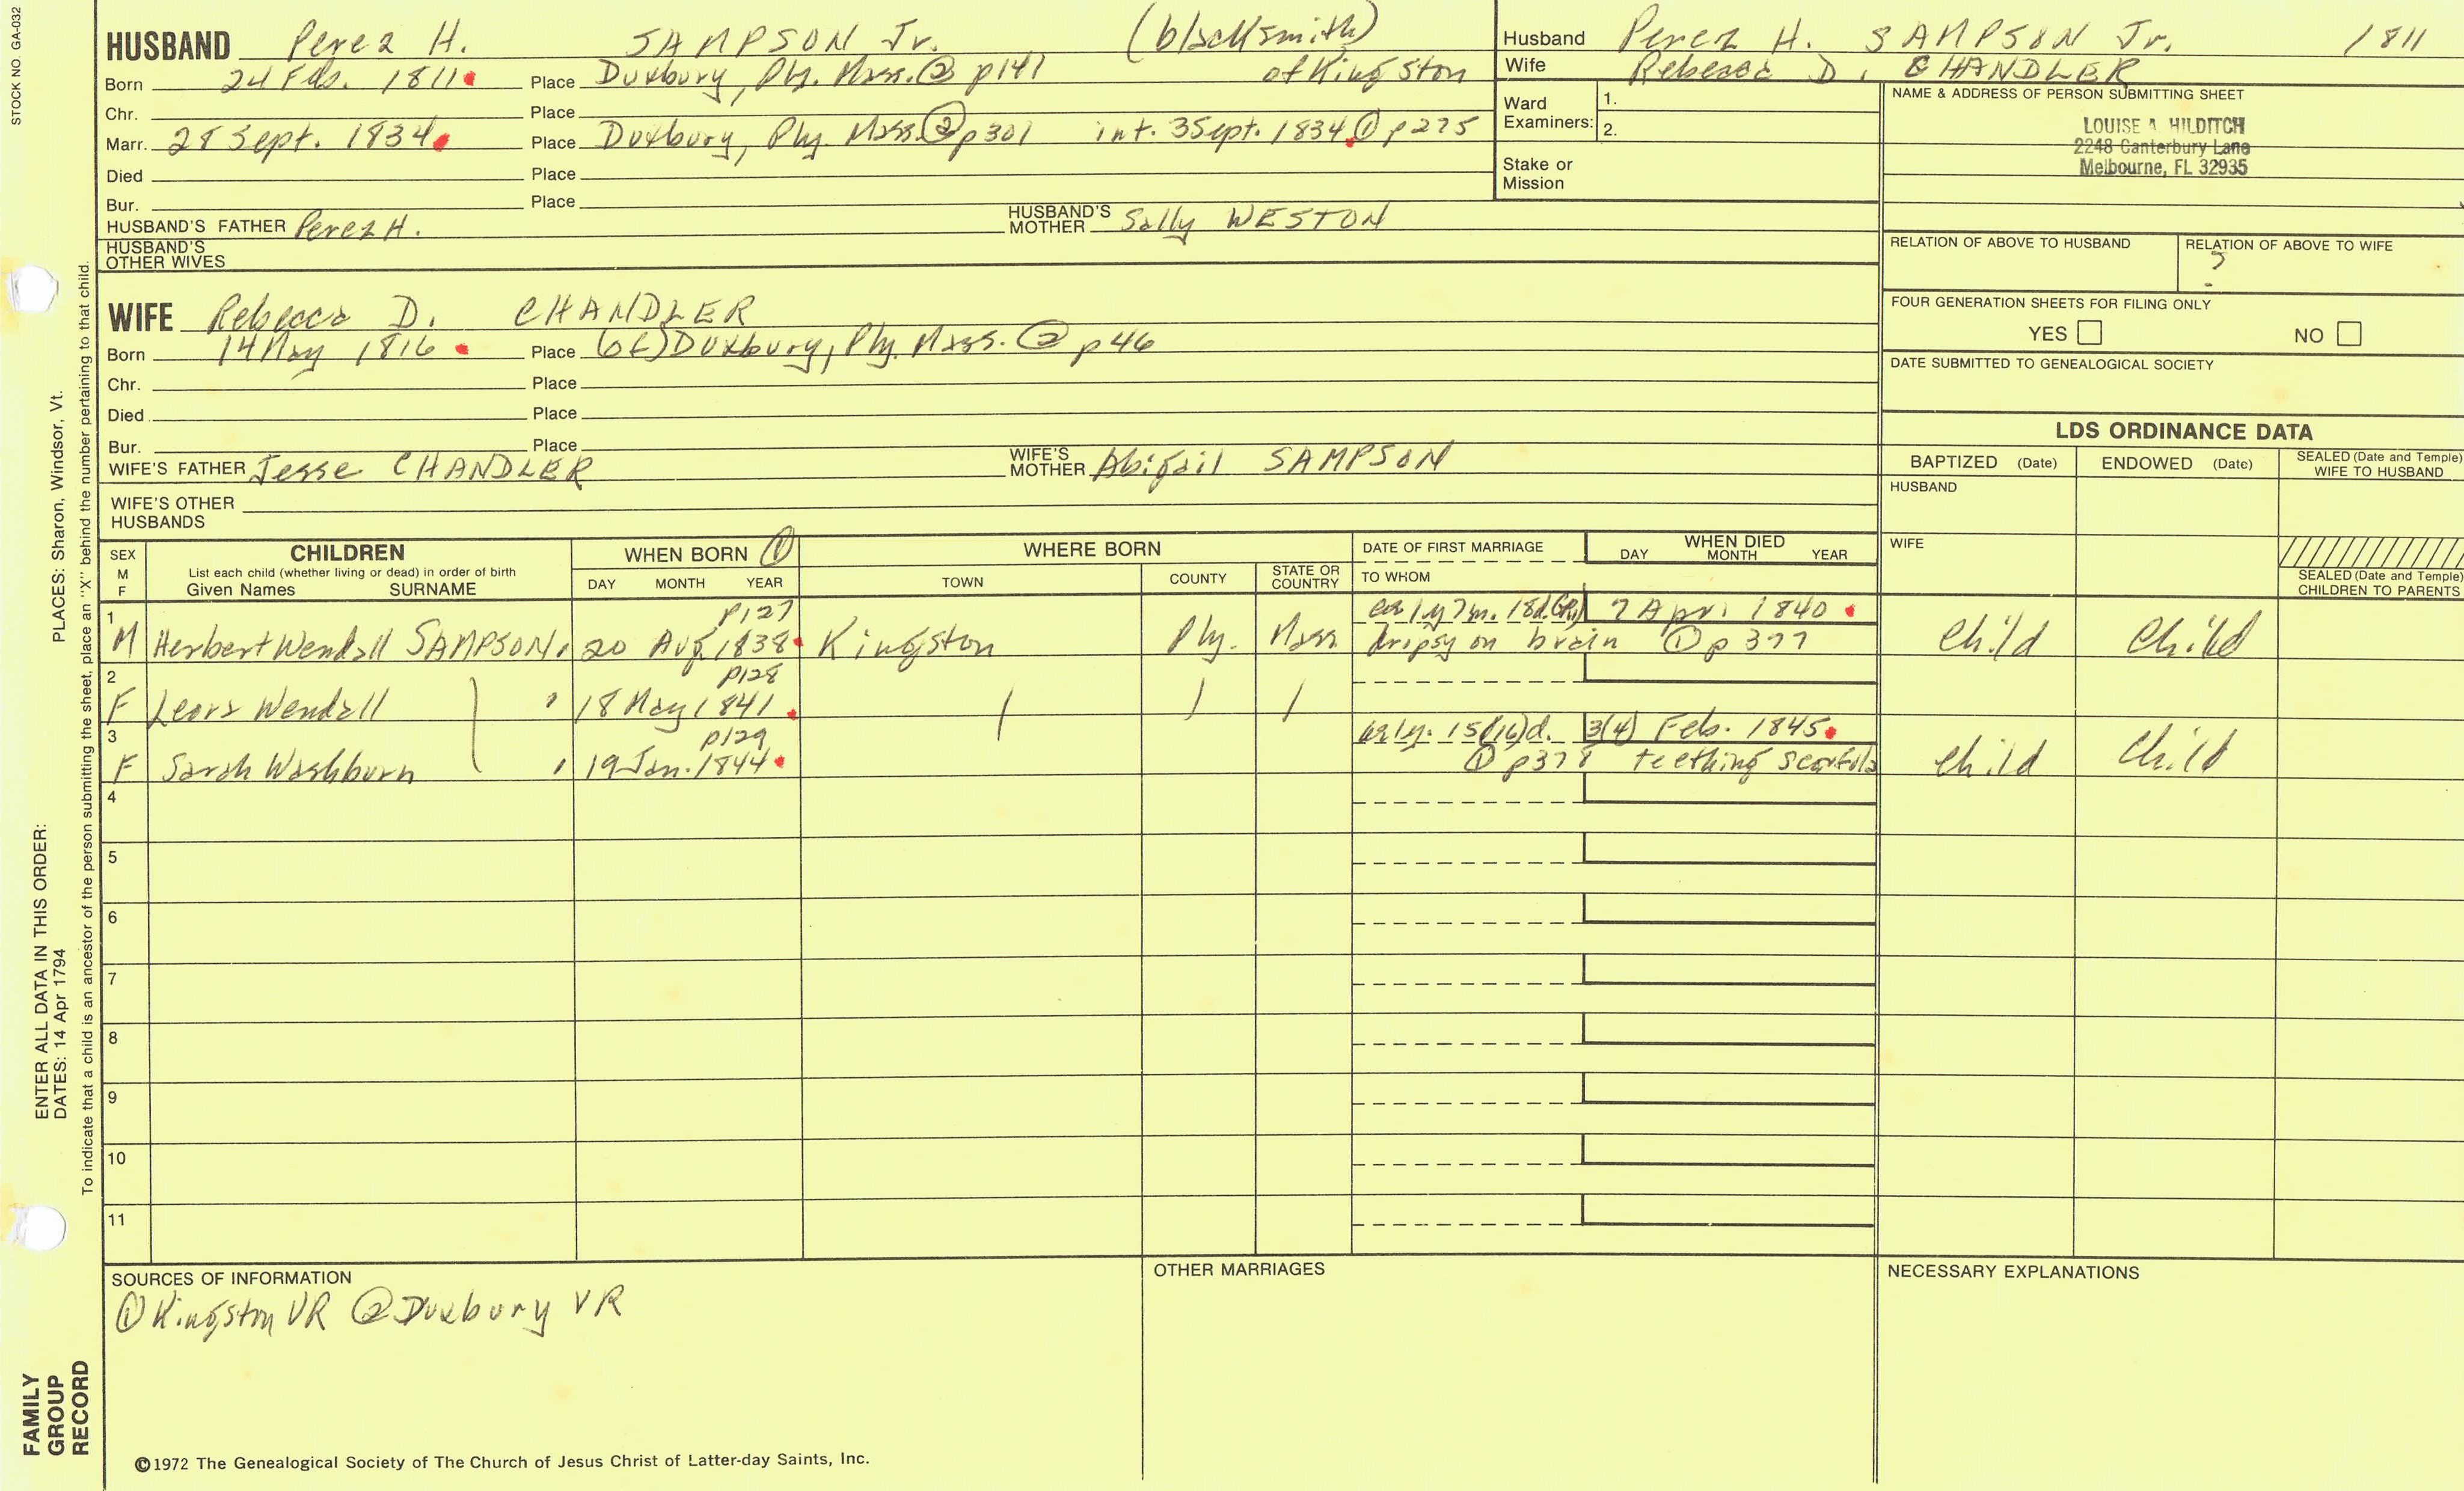 STOCK NO. GA-032
HUSBAND Perez H. SAMPSON Jr. (blacksmith)
Born 24 Feb. 1811 Place Duxbury, Ply. Mass. ② p141 of Kingston
Chr. Place
Marr. 28 Sept. 1834 Place Duxbury, Ply. Mass. ② p301 int. 3 Sept. 1834 ① p275
Died Place
Bur. Place
HUSBAND'S FATHER Perez H. HUSBAND'S MOTHER Sally WESTON
HUSBAND'S OTHER WIVES
Husband Perez H. SAMPSON Jr. 1811
Wife Rebecca D. CHANDLER
Ward Examiners: 1.
2.
Stake or Mission
NAME & ADDRESS OF PERSON SUBMITTING SHEET
LOUISE A HILDITCH
2248 Canterbury Lane
Melbourne, FL 32935
RELATION OF ABOVE TO HUSBAND RELATION OF ABOVE TO WIFE
?
FOUR GENERATION SHEETS FOR FILING ONLY
YES NO
DATE SUBMITTED TO GENEALOGICAL SOCIETY
WIFE Rebecca D. CHANDLER
Born 14 May 1816 Place (of) Duxbury, Ply. Mass. ② p46
Chr. Place
Died Place
Bur. Place
WIFE'S FATHER Jesse CHANDLER WIFE'S MOTHER Abigail SAMPSON
WIFE'S OTHER HUSBANDS
LDS ORDINANCE DATA
BAPTIZED (Date) ENDOWED (Date) SEALED (Date and Temple) WIFE TO HUSBAND
HUSBAND
WIFE
SEALED (Date and Temple) CHILDREN TO PARENTS
SEX M F CHILDREN WHEN BORN ① WHERE BORN DATE OF FIRST MARRIAGE WHEN DIED
List each child (whether living or dead) in order of birth DAY MONTH YEAR TOWN COUNTY STATE OR COUNTRY TO WHOM DAY MONTH YEAR
Given Names SURNAME
1 p127 1y 7m. 18d. 7 Apr. 1840
M Herbert Wendall SAMPSON. 20 Aug 1838 Kingston Ply. Mass dropsy on brain ① p 377 Child Child
2 p128
F Leora Wendall " 18 May 1841
3 p129 1y. 15(16)d. 3(4) Feb. 1845
F Sarah Washburn " 19 Jan. 1844 ① p378 teething Child Child
4
5
6
7
8
9
10
11
SOURCES OF INFORMATION OTHER MARRIAGES NECESSARY EXPLANATIONS
① Kingston VR ② Duxbury VR
©1972 The Genealogical Society of The Church of Jesus Christ of Latter-day Saints, Inc.
FAMILY GROUP RECORD
ENTER ALL DATA IN THIS ORDER:
DATES: 14 Apr 1794 PLACES: Sharon, Windsor, Vt.
To indicate that a child is an ancestor of the person submitting the sheet, place an "X" behind the number pertaining to that child.